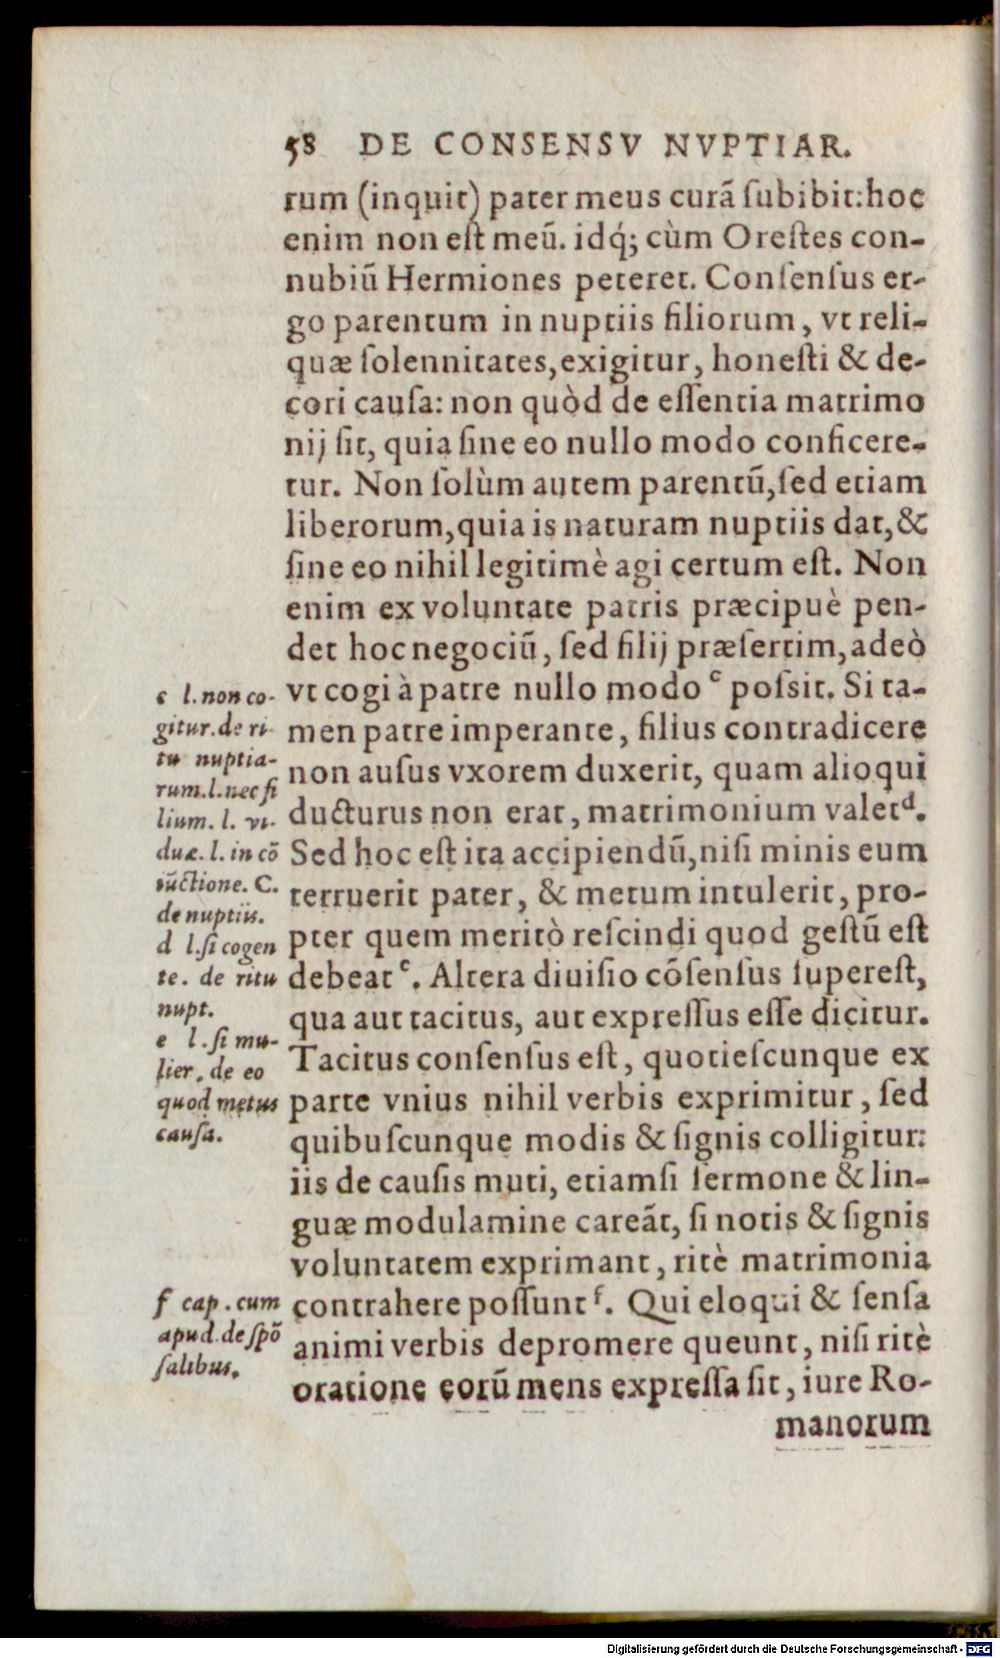 58 DE CONSENSV NVPTIAR.
rum (inquit) pater meus curã ſubibit:hoc
enim non eſt meũ. idq́; cùm Oreſtes con-
nubiũ Hermiones peteret. Conſenſus er-
go parentum in nuptiis filiorum, vt reli-
quæ ſolennitates, exigitur, honeſti & de-
cori cauſa: non quòd de eſſentia matrimo
nij ſit, quia ſine eo nullo modo conficere-
tur. Non ſolùm autem parentũ, ſed etiam
liberorum, quia is naturam nuptiis dat, &
ſine eo nihil legitimè agi certum eſt. Non
enim ex voluntate patris præcipuè pen-
det hoc negociũ, ſed filij præſertim, adeò
vt cogi à patre nullo modo c poſsit. Si ta-
men patre imperante, filius contradicere
non auſus vxorem duxerit, quam alioqui
ducturus non erat, matrimonium valet d.
Sed hoc eſt ita accipiendũ, niſi minis eum
terruerit pater, & metum intulerit, pro-
pter quem meritò reſcindi quod geſtũ eſt
debeat e. Altera diuiſio cõſenſus ſupereſt,
qua aut tacitus, aut expreſſus eſſe dicitur.
Tacitus conſenſus eſt, quotieſcunque ex
parte vnius nihil verbis exprimitur, ſed
quibuſcunque modis & ſignis colligitur:
iis de cauſis muti, etiamſi ſermone & lin-
guæ modulamine careãt, ſi notis & ſignis
voluntatem exprimant, ritè matrimonia
contrahere poſſunt f. Qui eloqui & ſenſa
animi verbis depromere queunt, niſi ritè
oratione eorũ mens expreſſa ſit, iure Ro-
manorum
c l. non co-
gitur. de ri-
tu nuptia-
rum. l. nec fi
lium. l. vi-
duæ. l. in cõ
iũctione. C.
de nuptiis.
d l. ſi cogen
te. de ritu
nupt.
e l. ſi mu-
lier. de eo
quod metus
cauſa.
f cap. cum
apud. de ſpõ
ſalibus.
Digitalisierung gefördert durch die Deutsche Forschungsgemeinschaft - DFG